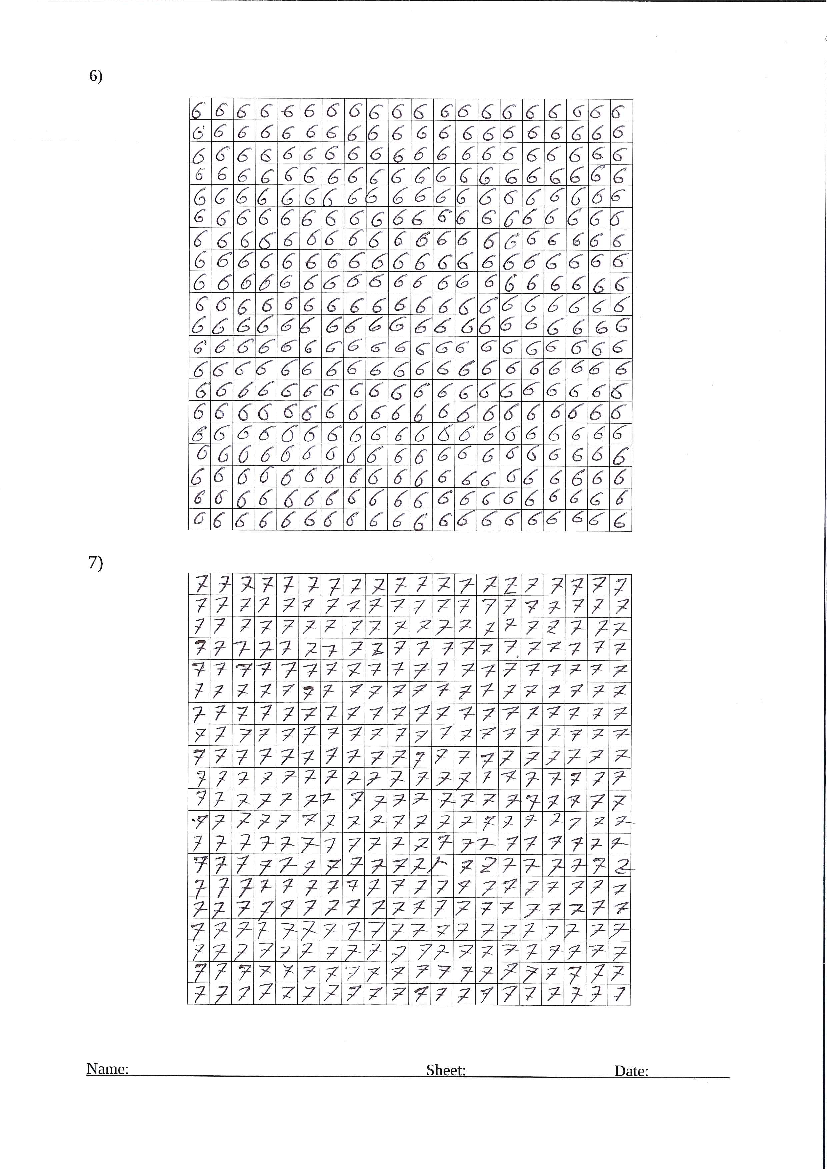 6)
6 6 6 6 6 6 6 6 6 6 6 6 6 6 6 6 6 6 6 6
6 6 6 6 6 6 6 6 6 6 6 6 6 6 6 6 6 6 6 6
6 6 6 6 6 6 6 6 6 6 6 6 6 6 6 6 6 6 6 6
6 6 6 6 6 6 6 6 6 6 6 6 6 6 6 6 6 6 6 6
6 6 6 6 6 6 6 6 6 6 6 6 6 6 6 6 6 6 6 6
6 6 6 6 6 6 6 6 6 6 6 6 6 6 6 6 6 6 6 6
6 6 6 6 6 6 6 6 6 6 6 6 6 6 6 6 6 6 6 6
6 6 6 6 6 6 6 6 6 6 6 6 6 6 6 6 6 6 6 6
6 6 6 6 6 6 6 6 6 6 6 6 6 6 6 6 6 6 6 6
6 6 6 6 6 6 6 6 6 6 6 6 6 6 6 6 6 6 6 6
6 6 6 6 6 6 6 6 6 6 6 6 6 6 6 6 6 6 6 6
6 6 6 6 6 6 6 6 6 6 6 6 6 6 6 6 6 6 6 6
6 6 6 6 6 6 6 6 6 6 6 6 6 6 6 6 6 6 6 6
6 6 6 6 6 6 6 6 6 6 6 6 6 6 6 6 6 6 6 6
6 6 6 6 6 6 6 6 6 6 6 6 6 6 6 6 6 6 6 6
6 6 6 6 6 6 6 6 6 6 6 6 6 6 6 6 6 6 6 6
6 6 6 6 6 6 6 6 6 6 6 6 6 6 6 6 6 6 6 6
6 6 6 6 6 6 6 6 6 6 6 6 6 6 6 6 6 6 6 6
6 6 6 6 6 6 6 6 6 6 6 6 6 6 6 6 6 6 6 6
6 6 6 6 6 6 6 6 6 6 6 6 6 6 6 6 6 6 6 6
7)
7 7 7 7 7 7 7 7 7 7 7 7 7 7 7 7 7 7 7 7
7 7 7 7 7 7 7 7 7 7 7 7 7 7 7 7 7 7 7 7
7 7 7 7 7 7 7 7 7 7 7 7 7 7 7 7 7 7 7 7
7 7 7 7 7 7 7 7 7 7 7 7 7 7 7 7 7 7 7 7
7 7 7 7 7 7 7 7 7 7 7 7 7 7 7 7 7 7 7 7
7 7 7 7 7 7 7 7 7 7 7 7 7 7 7 7 7 7 7 7
7 7 7 7 7 7 7 7 7 7 7 7 7 7 7 7 7 7 7 7
7 7 7 7 7 7 7 7 7 7 7 7 7 7 7 7 7 7 7 7
7 7 7 7 7 7 7 7 7 7 7 7 7 7 7 7 7 7 7 7
7 7 7 7 7 7 7 7 7 7 7 7 7 7 7 7 7 7 7 7
7 7 7 7 7 7 7 7 7 7 7 7 7 7 7 7 7 7 7 7
7 7 7 7 7 7 7 7 7 7 7 7 7 7 7 7 7 7 7 7
7 7 7 7 7 7 7 7 7 7 7 7 7 7 7 7 7 7 7 7
7 7 7 7 7 7 7 7 7 7 7 7 7 7 7 7 7 7 7
7 7 7 7 7 7 7 7 7 7 7 7 7 7 7 7 7 7 7 7
7 7 7 7 7 7 7 7 7 7 7 7 7 7 7 7 7 7 7 7
7 7 7 7 7 7 7 7 7 7 7 7 7 7 7 7 7 7 7 7
7 7 7 7 7 7 7 7 7 7 7 7 7 7 7 7 7 7 7 7
7 7 7 7 7 7 7 7 7 7 7 7 7 7 7 7 7 7 7 7
7 7 7 7 7 7 7 7 7 7 7 7 7 7 7 7 7 7 7 7
Name: Sheet: Date: